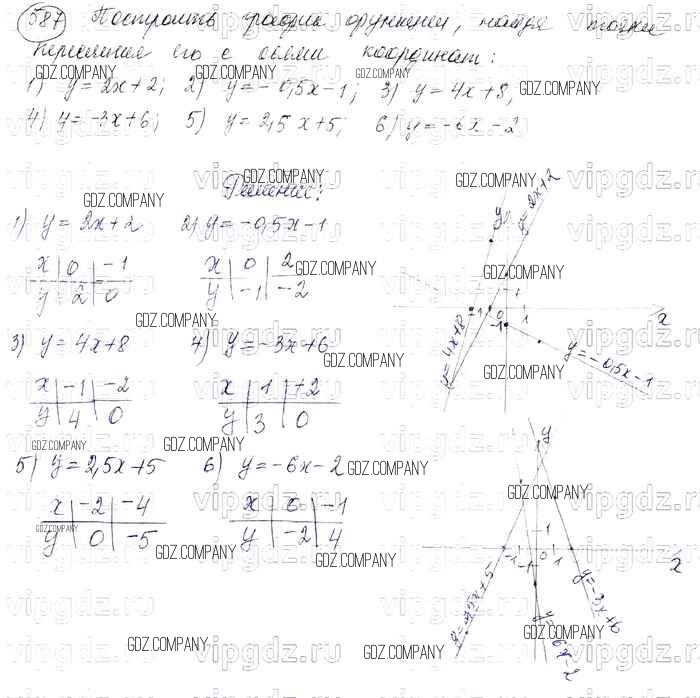 587 Построить график функции, найдя точки
пересечения его с осями координат:
1) y=2x+2; 2) y=-0,5x-1; 3) y=4x+8;
4) y=-3x+6; 5) y=2,5x+5; 6) y=-6x-2
Решение:
1) y=2x+2 2) y=-0,5x-1
x | 0 | -1 x | 0 | 2
y | 2 | 0 y | -1 | -2
3) y=4x+8 4) y=-3x+6
x | -1 | -2 x | 1 | +2
y | 4 | 0 y | 3 | 0
5) y=2,5x+5 6) y=-6x-2
x | -2 | -4 x | 0 | -1
y | 0 | -5 y | -2 | 4
y
y=2x+2
1
-1 0 1 x
-1
y=4x+8
y=-0,5x-1
y
1
-1 0 1 x
-1
y=2,5x+5
y=-3x+6
y=-6x-2
GDZ.COMPANY
vipgdz.ru